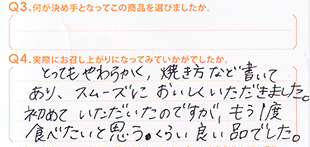 Q3.何が決め手となってこの商品を選びましたか。
Q4.実際にお召し上がりになってみていかがでしたか。
とってもやわらかく，焼き方など書いて
あり、スムーズに おいしくいただきました。
初めて いただいたのですが，もう1度
食べたいと思う。くらい良い品でした。